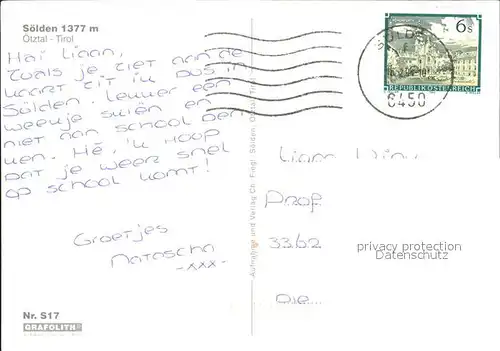 Sölden 1377 m
Ötztal - Tirol
Hai Liaan,
Zoals je ziet aan de
kaart zit ik dus in
Sölden. Lekker een
weekje skiën en
niet aan school den
ken. Hé, 'k hoop
dat je weer snel
op school komt!
Groetjes
Natascha
-xxx-
Nr. S17
GRAFOLITH
Aufnahme und Verlag Ch. Fiegl Sölden Ötztal - Tirol
6 S
REPUBLIK ÖSTERREICH
SÖLDE
6450
Prof
33b2
Die
privacy protection
Datenschutz